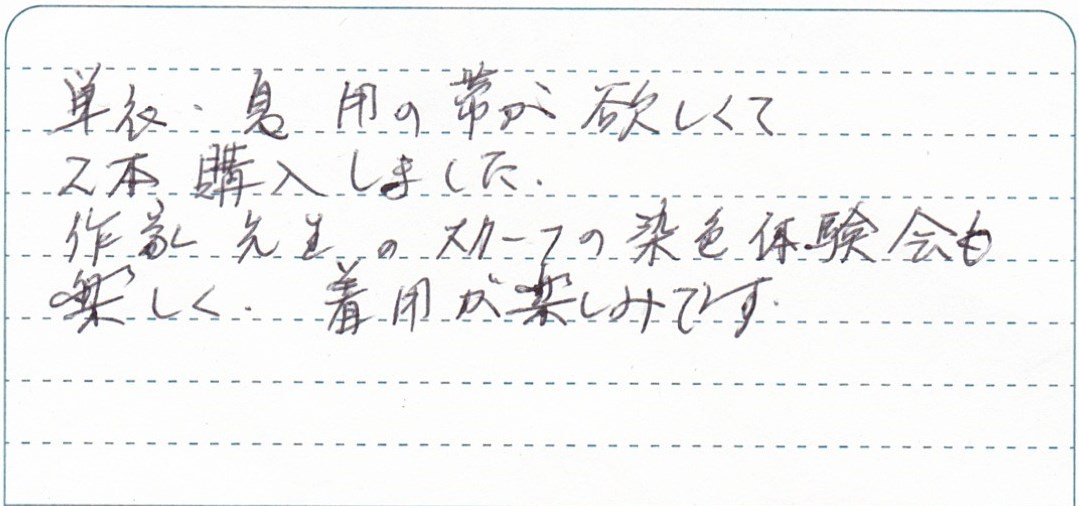 単衣・夏 用の帯が欲しくて
2本 購入しました.
作家 先生のスカーフの染色体験会も
楽しく. 着用が楽しみです.